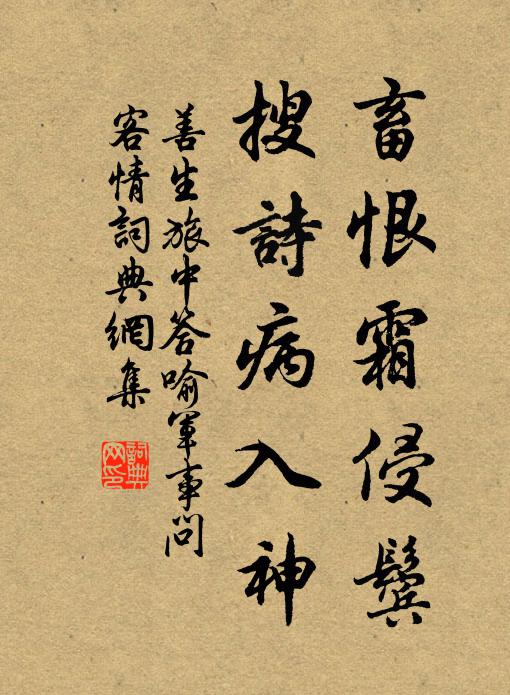 畜恨霜侵鬓
搜詩病入神
善生旅中答喻軍事問
客情詞典網集
詞典
网印